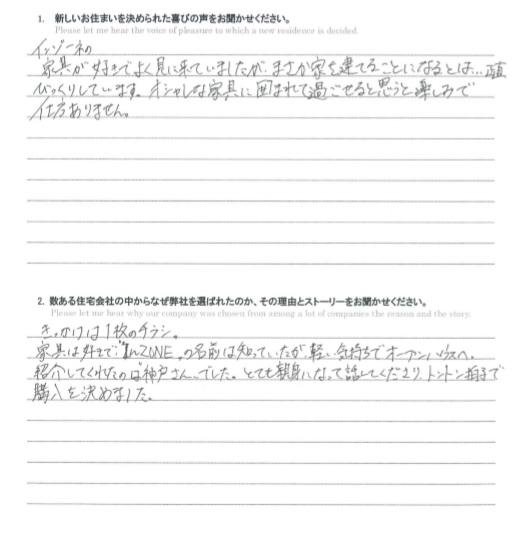 1. 新しいお住まいを決められた喜びの声をお聞かせください。
Please let me hear the voice of pleasure to which a new residence is decided.
インゾーネの
家具が好きでよく見に来ていましたが、まさか家を建てることになるとは…正直
びっくりしています。オシャレな家具に囲まれて過ごせると思うと楽しみで
仕方ありません。
2. 数ある住宅会社の中からなぜ弊社を選ばれたのか、その理由とストーリーをお聞かせください。
Please let me hear why our company was chosen from among a lot of companies the reason and the story.
きっかけは1枚のチラシ。
家具は好きで"InZONE"の名前は知っていたが、軽い気持ちでオープンハウスへ。
紹介してくれたのは神戸さんでした。とても親身になって話してくださり、トントン拍子で
購入を決めました。